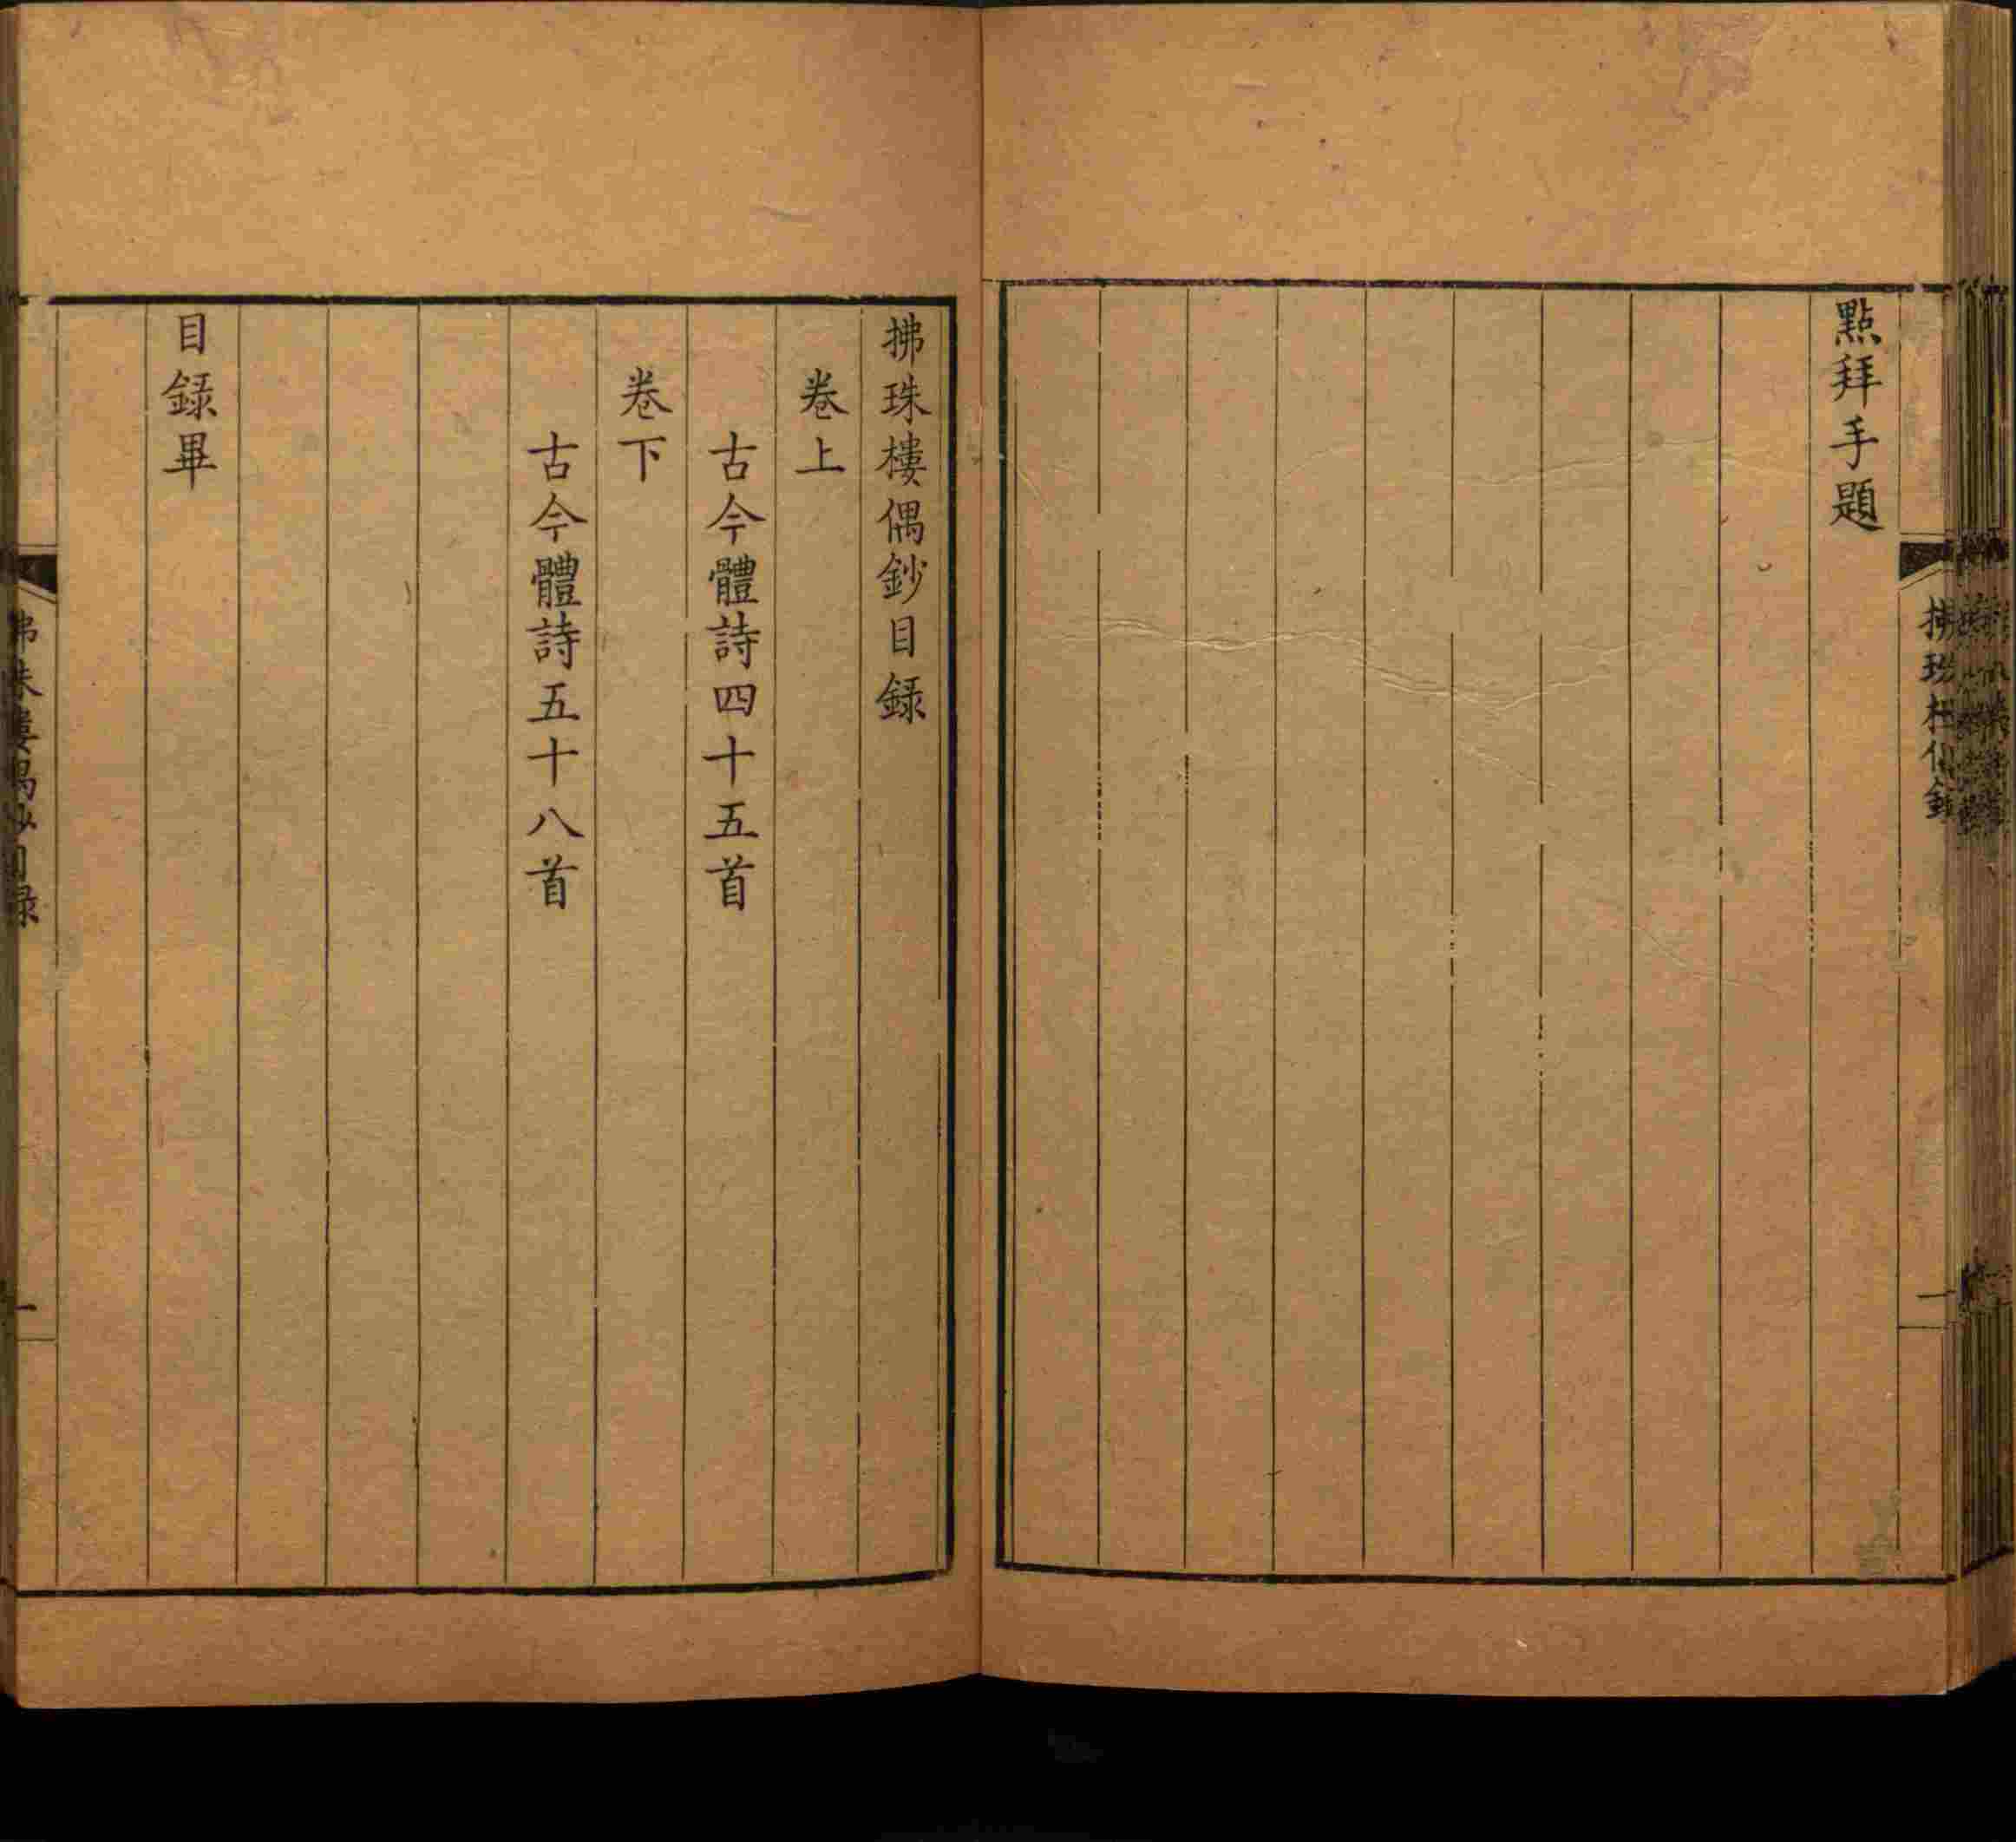 點拜手題
拂珠樓偶鈔
一
拂珠樓偶鈔目録
卷上
古今體詩四十五首
卷下
古今體詩五十八首
目録畢
拂珠樓偶鈔目録
一